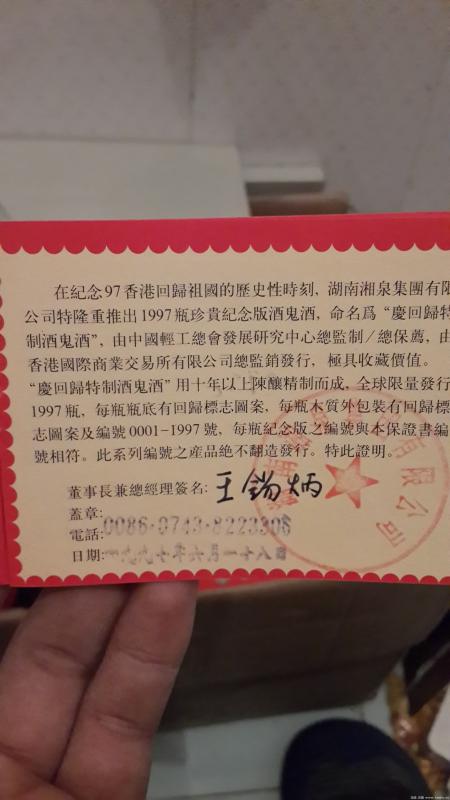 在紀念97香港回歸祖國的歷史性時刻，湖南湘泉集團有限
公司特隆重推出1997瓶珍貴紀念版酒鬼酒，命名爲“慶回歸特
制酒鬼酒”，由中國輕工總會發展研究中心總監制／總保薦，由
香港國際商業交易所有限公司總監銷發行，極具收藏價值。
“慶回歸特制酒鬼酒”用十年以上陳釀精制而成，全球限量發行
1997瓶，每瓶瓶底有回歸標志圖案，每瓶木質外包裝有回歸標
志圖案及編號0001-1997號，每瓶紀念版之編號與本保證書編
號相符。此系列編號之産品絶不翻造發行。特此證明。
董事長兼總經理簽名：王錫炳
蓋章：
電話：0086-0743-8223308
日期：
有限公司